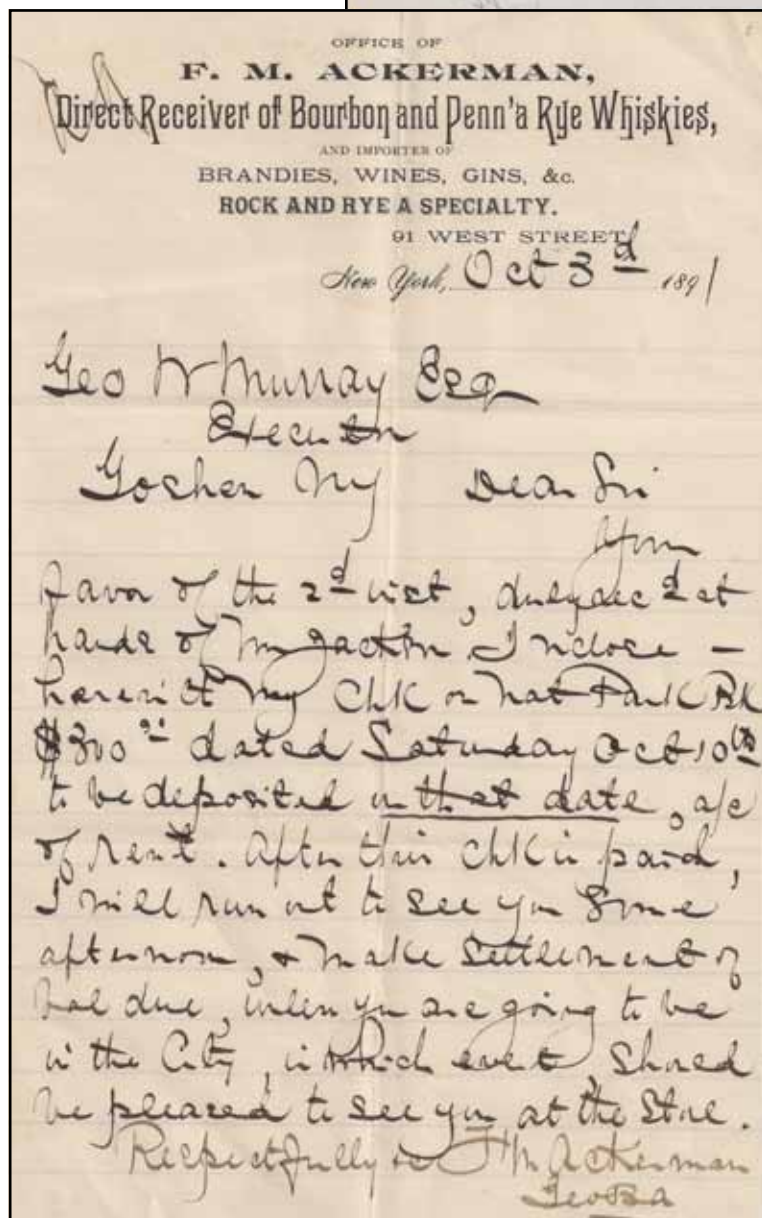 OFFICE OF
F. M. ACKERMAN,
Direct Receiver of Bourbon and Penn'a Rye Whiskies,
AND IMPORTER OF
BRANDIES, WINES, GINS, &c.
ROCK AND RYE A SPECIALTY.
91 WEST STREET
New York, Oct 3d 1891
Geo W Murray Esq
Executor
Goshen NY Dear Sir
Your
favor of the 2d inst, duly rec'd at
hands of Mr Jackson. I inclose —
herewith my Chk on Nat Park Bk
$300 dated Saturday Oct 10th
to be deposited on that date, a/c
of rent. After this chk is paid,
I will run out to see you some
afternoon, & make settlement of
bal due, unless you are going to be
in the City, in which event, should
be pleased to see you at the store.
Respectfully &c F M Ackerman